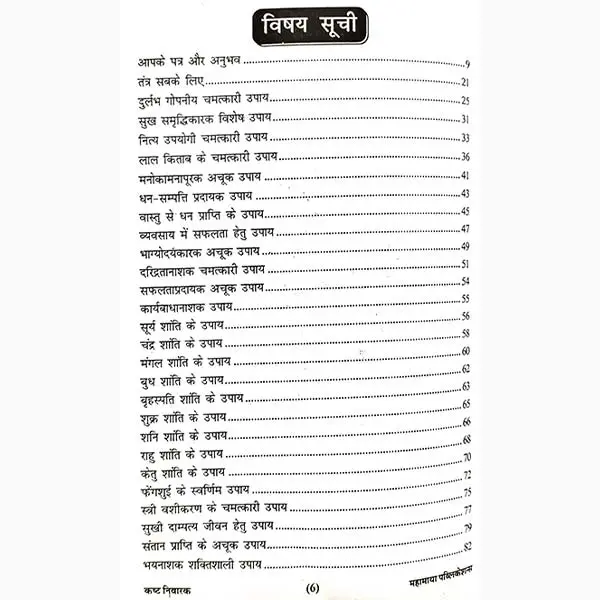 विषय सूची
आपके पत्र और अनुभव ........ 9
तंत्र सबके लिए ........ 21
दुर्लभ गोपनीय चमत्कारी उपाय ........ 25
सुख समृद्धिकारक विशेष उपाय ........ 31
नित्य उपयोगी चमत्कारी उपाय ........ 33
लाल किताब के चमत्कारी उपाय ........ 36
मनोकामनापूरक अचूक उपाय ........ 41
धन-सम्पत्ति प्रदायक उपाय ........ 43
वास्तु से धन प्राप्ति के उपाय ........ 45
व्यवसाय में सफलता हेतु उपाय ........ 47
भाग्योदयकारक अचूक उपाय ........ 49
दरिद्रतानाशक चमत्कारी उपाय ........ 51
सफलताप्रदायक अचूक उपाय ........ 54
कार्यबाधानाशक उपाय ........ 55
सूर्य शांति के उपाय ........ 56
चंद्र शांति के उपाय ........ 58
मंगल शांति के उपाय ........ 60
बुध शांति के उपाय ........ 62
बृहस्पति शांति के उपाय ........ 63
शुक्र शांति के उपाय ........ 65
शनि शांति के उपाय ........ 66
राहु शांति के उपाय ........ 68
केतु शांति के उपाय ........ 70
फेंगशुई के स्वर्णिम उपाय ........ 72
स्त्री वशीकरण के चमत्कारी उपाय ........ 75
सुखी दाम्पत्य जीवन हेतु उपाय ........ 77
संतान प्राप्ति के अचूक उपाय ........ 79
भयनाशक शक्तिशाली उपाय ........ 82
कष्ट निवारक (6) महामाया पब्लिकेशन्स